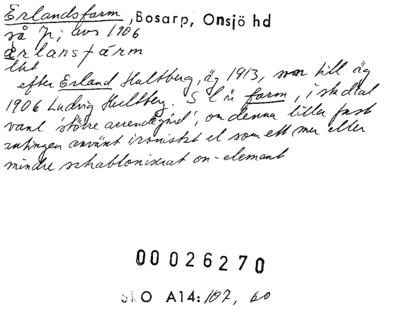 Erlandsfarm, Bosarp, Onsjö hd
så Jr; avs 1906
ærlansfárm
Ukt
efter Erland Hultberg, äg 1913, son till äg
1906 Ludvig Hultberg. S l är farm, i sk dial
vanl 'större arrendegård', om denna lilla fast
antingen använt ironiskt el som ett mer eller
mindre schabloniserat on-element
00026270
SKO A14: 107, 60